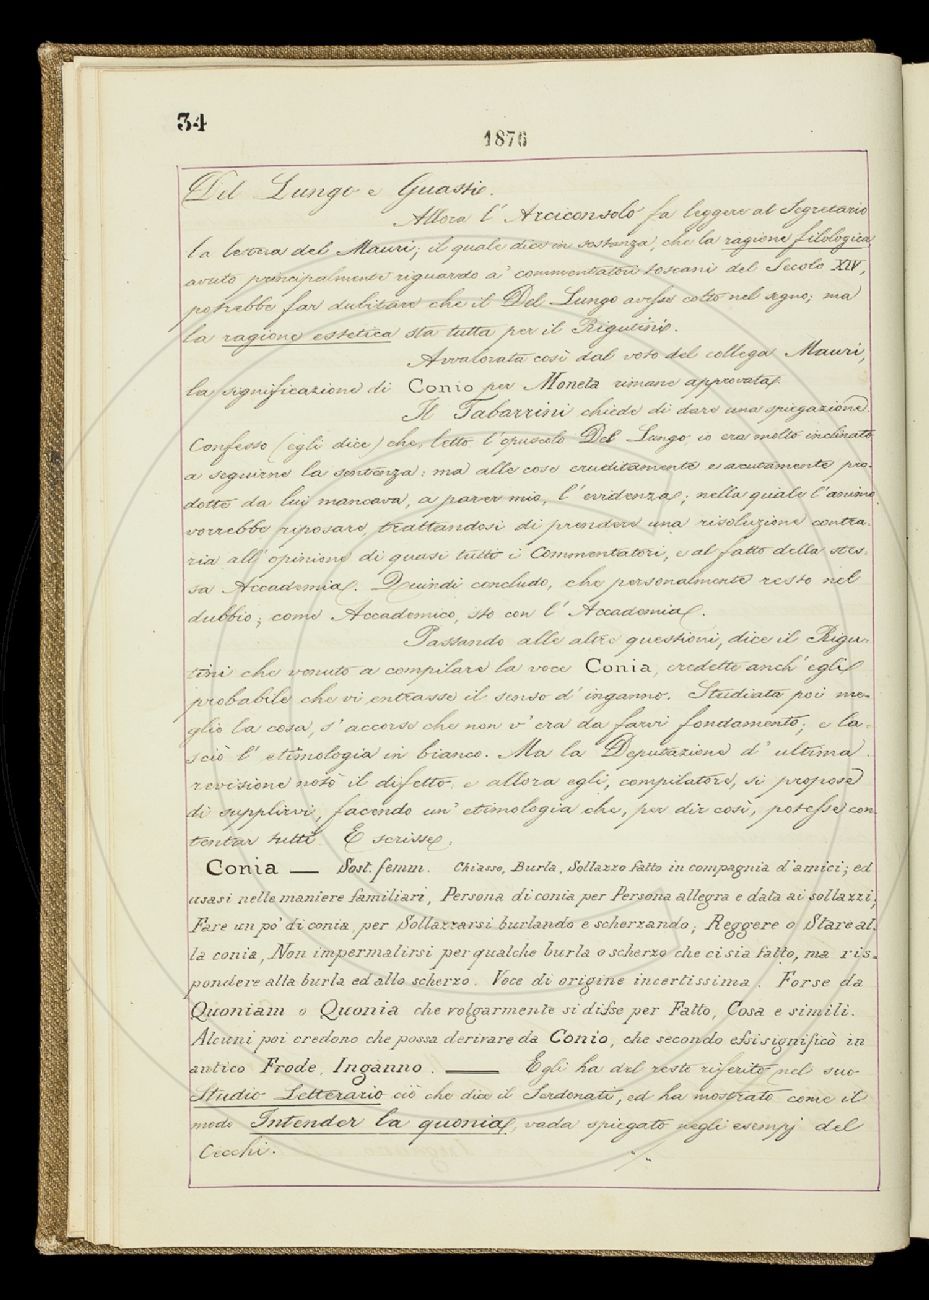 34
1876
Del Lungo e Guasti.
Allora l' Arciconsolo fa leggere al Segretario
la lettera del Mauri; il quale dice in sostanza, che la ragione filologica,
avuto principalmente riguardo a' commentatori toscani del Secolo XIV,
potrebbe far dubitare che il Del Lungo avesse colto nel segno; ma
la ragione estetica sta tutta per il Rigutini.
Avvalorata così dal voto del collega Mauri,
la significazione di Conio per Moneta rimane approvata.
Il Tabarrini chiede di dare una spiegazione.
Confesso (egli dice) che, letto l'opuscolo Del Lungo io era molto inclinato
a seguirne la sentenza: ma alle cose eruditamente e acutamente pro-
dotte da lui mancava, a parer mio, l' evidenza; nella quale l'animo
vorrebbe riposare, trattandosi di prendere una risoluzione contra-
ria all' opinione di quasi tutti i Commentatori, e al fatto della stes-
sa Accademia. Quindi concludo, che personalmente resto nel
dubbio; come Accademico, sto con l' Accademia.
Passando alle altre questioni, dice il Rigu-
tini che venuto a compilare la voce Conia, credette anch' egli
probabile che vi entrasse il senso d' inganno. Studiata poi me-
glio la cosa, s' accorse che non v' era da farvi fondamento; e la-
sciò l' etimologia in bianco. Ma la Deputazione d' ultima
revisione notò il difetto, e allora egli, compilatore, si propose
di supplirvi, facendo un' etimologia che, per dir così, potesse con-
tentar tutti. E scrisse,
Conia — Sost. femm. Chiasso, Burla, Sollazzo fatto in compagnia d'amici; ed
usasi nelle maniere familiari, Persona di conia per Persona allegra e data ai sollazzi;
Fare un pò di conia, per Sollazzarsi burlando e scherzando; Reggere o Stare al-
la conia, Non impermalirsi per qualche burla o scherzo che ci sia fatto, ma ris-
pondere alla burla ed allo scherzo. Voce di origine incertissima. Forse da
Quoniam o Quonia che volgarmente si disse per Fatto, Cosa e simili.
Alcuni poi credono che possa derivare da Conio, che secondo essi significò in
antico Frode, Inganno. — Egli ha del resto riferito nel suo
Studio Letterario ciò che dice il Serdonati, ed ha mostrato come il
modo Intender la quonia, vada spiegato negli esempj del
Cecchi.